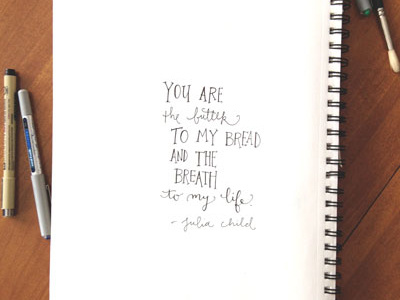 YOU ARE
the butter
TO MY BREAD
AND THE
BREATH
to my life
- julia child